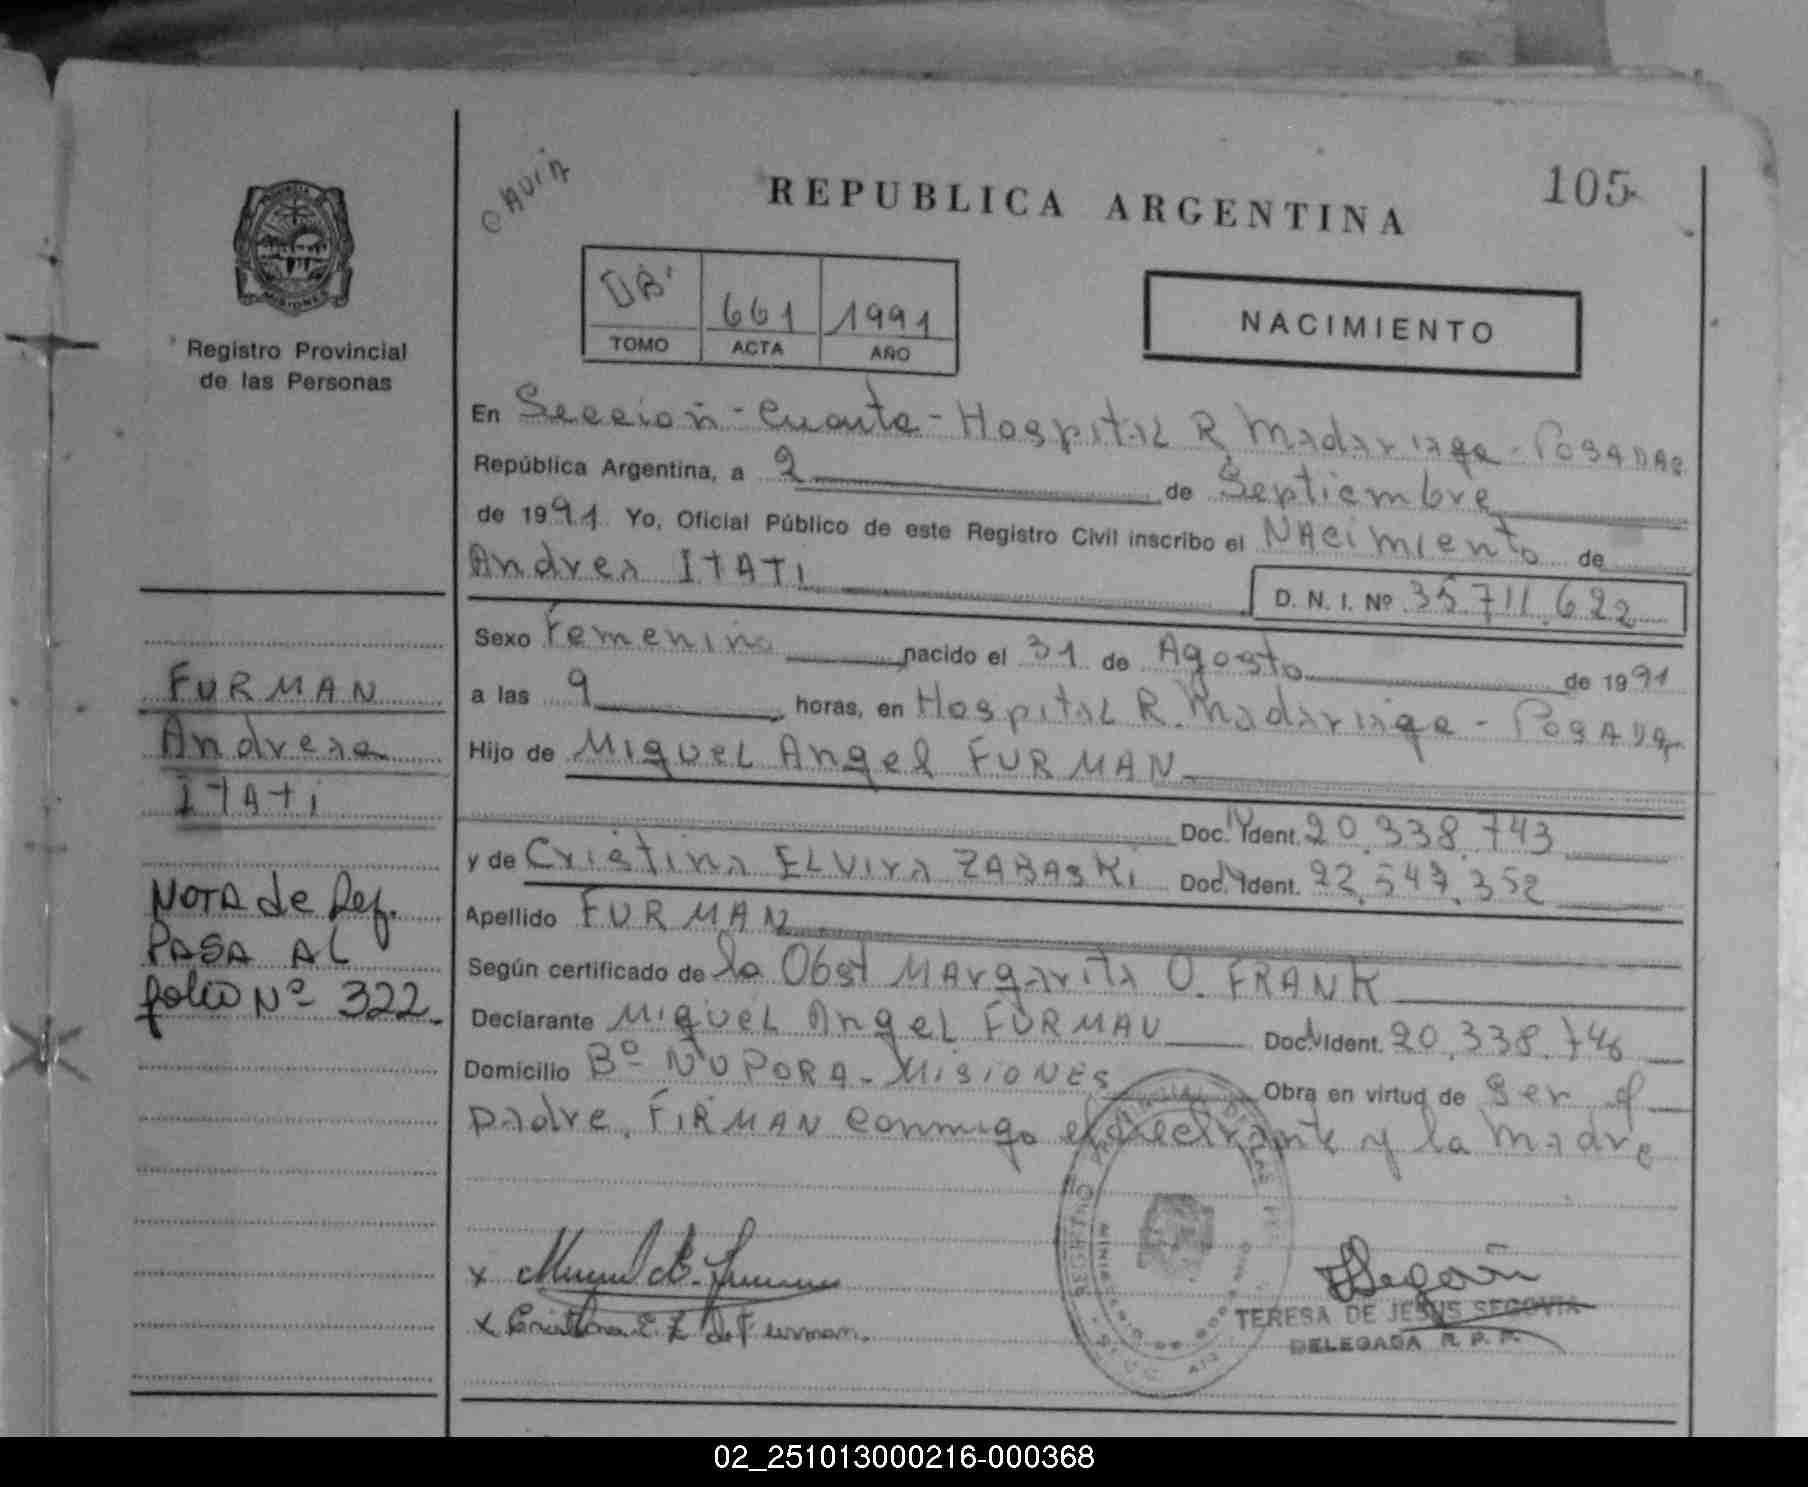 CAVIA
REPUBLICA ARGENTINA
105
661 1991
TOMO ACTA AÑO
NACIMIENTO
Registro Provincial
de las Personas
En Sección - Cuarta - Hospital R. Madariaga - POSADAS
República Argentina, a 2 de Septiembre
de 1991 Yo, Oficial Público de este Registro Civil inscribo el NAcimiento de
Andrea ITATI
D. N. I. Nº 35.711.622
Sexo Femenino nacido el 31 de Agosto de 1991
a las 9 horas, en Hospital R. Madariaga - POSADAS
Hijo de Miguel Angel FURMAN
Doc. Ident. 20.338.743
y de Cristina ELVIRA ZABASKI Doc. Ident. 22.547.352
Apellido FURMAN
Según certificado de la Obst MARgarita O. FRANK
Declarante Miguel Angel FURMAN Doc. Ident. 20.338.746
Domicilio Bº ÑU PORA - MISIONES Obra en virtud de Ser el
padre. FIRMAN conmigo el declarante y la madre
FURMAN
Andrea
ITATI
NOTA de Ref.
PASA AL
folio Nº 322.
x
x Cristina E. Z. de Furman.
Segovia
TERESA DE JESUS SEGOVIA
DELEGADA R. P. P.
REGISTRO PROVINCIAL DE LAS
MINISTERIO DE GOBIERNO
MISIONES
02_251013000216-000368